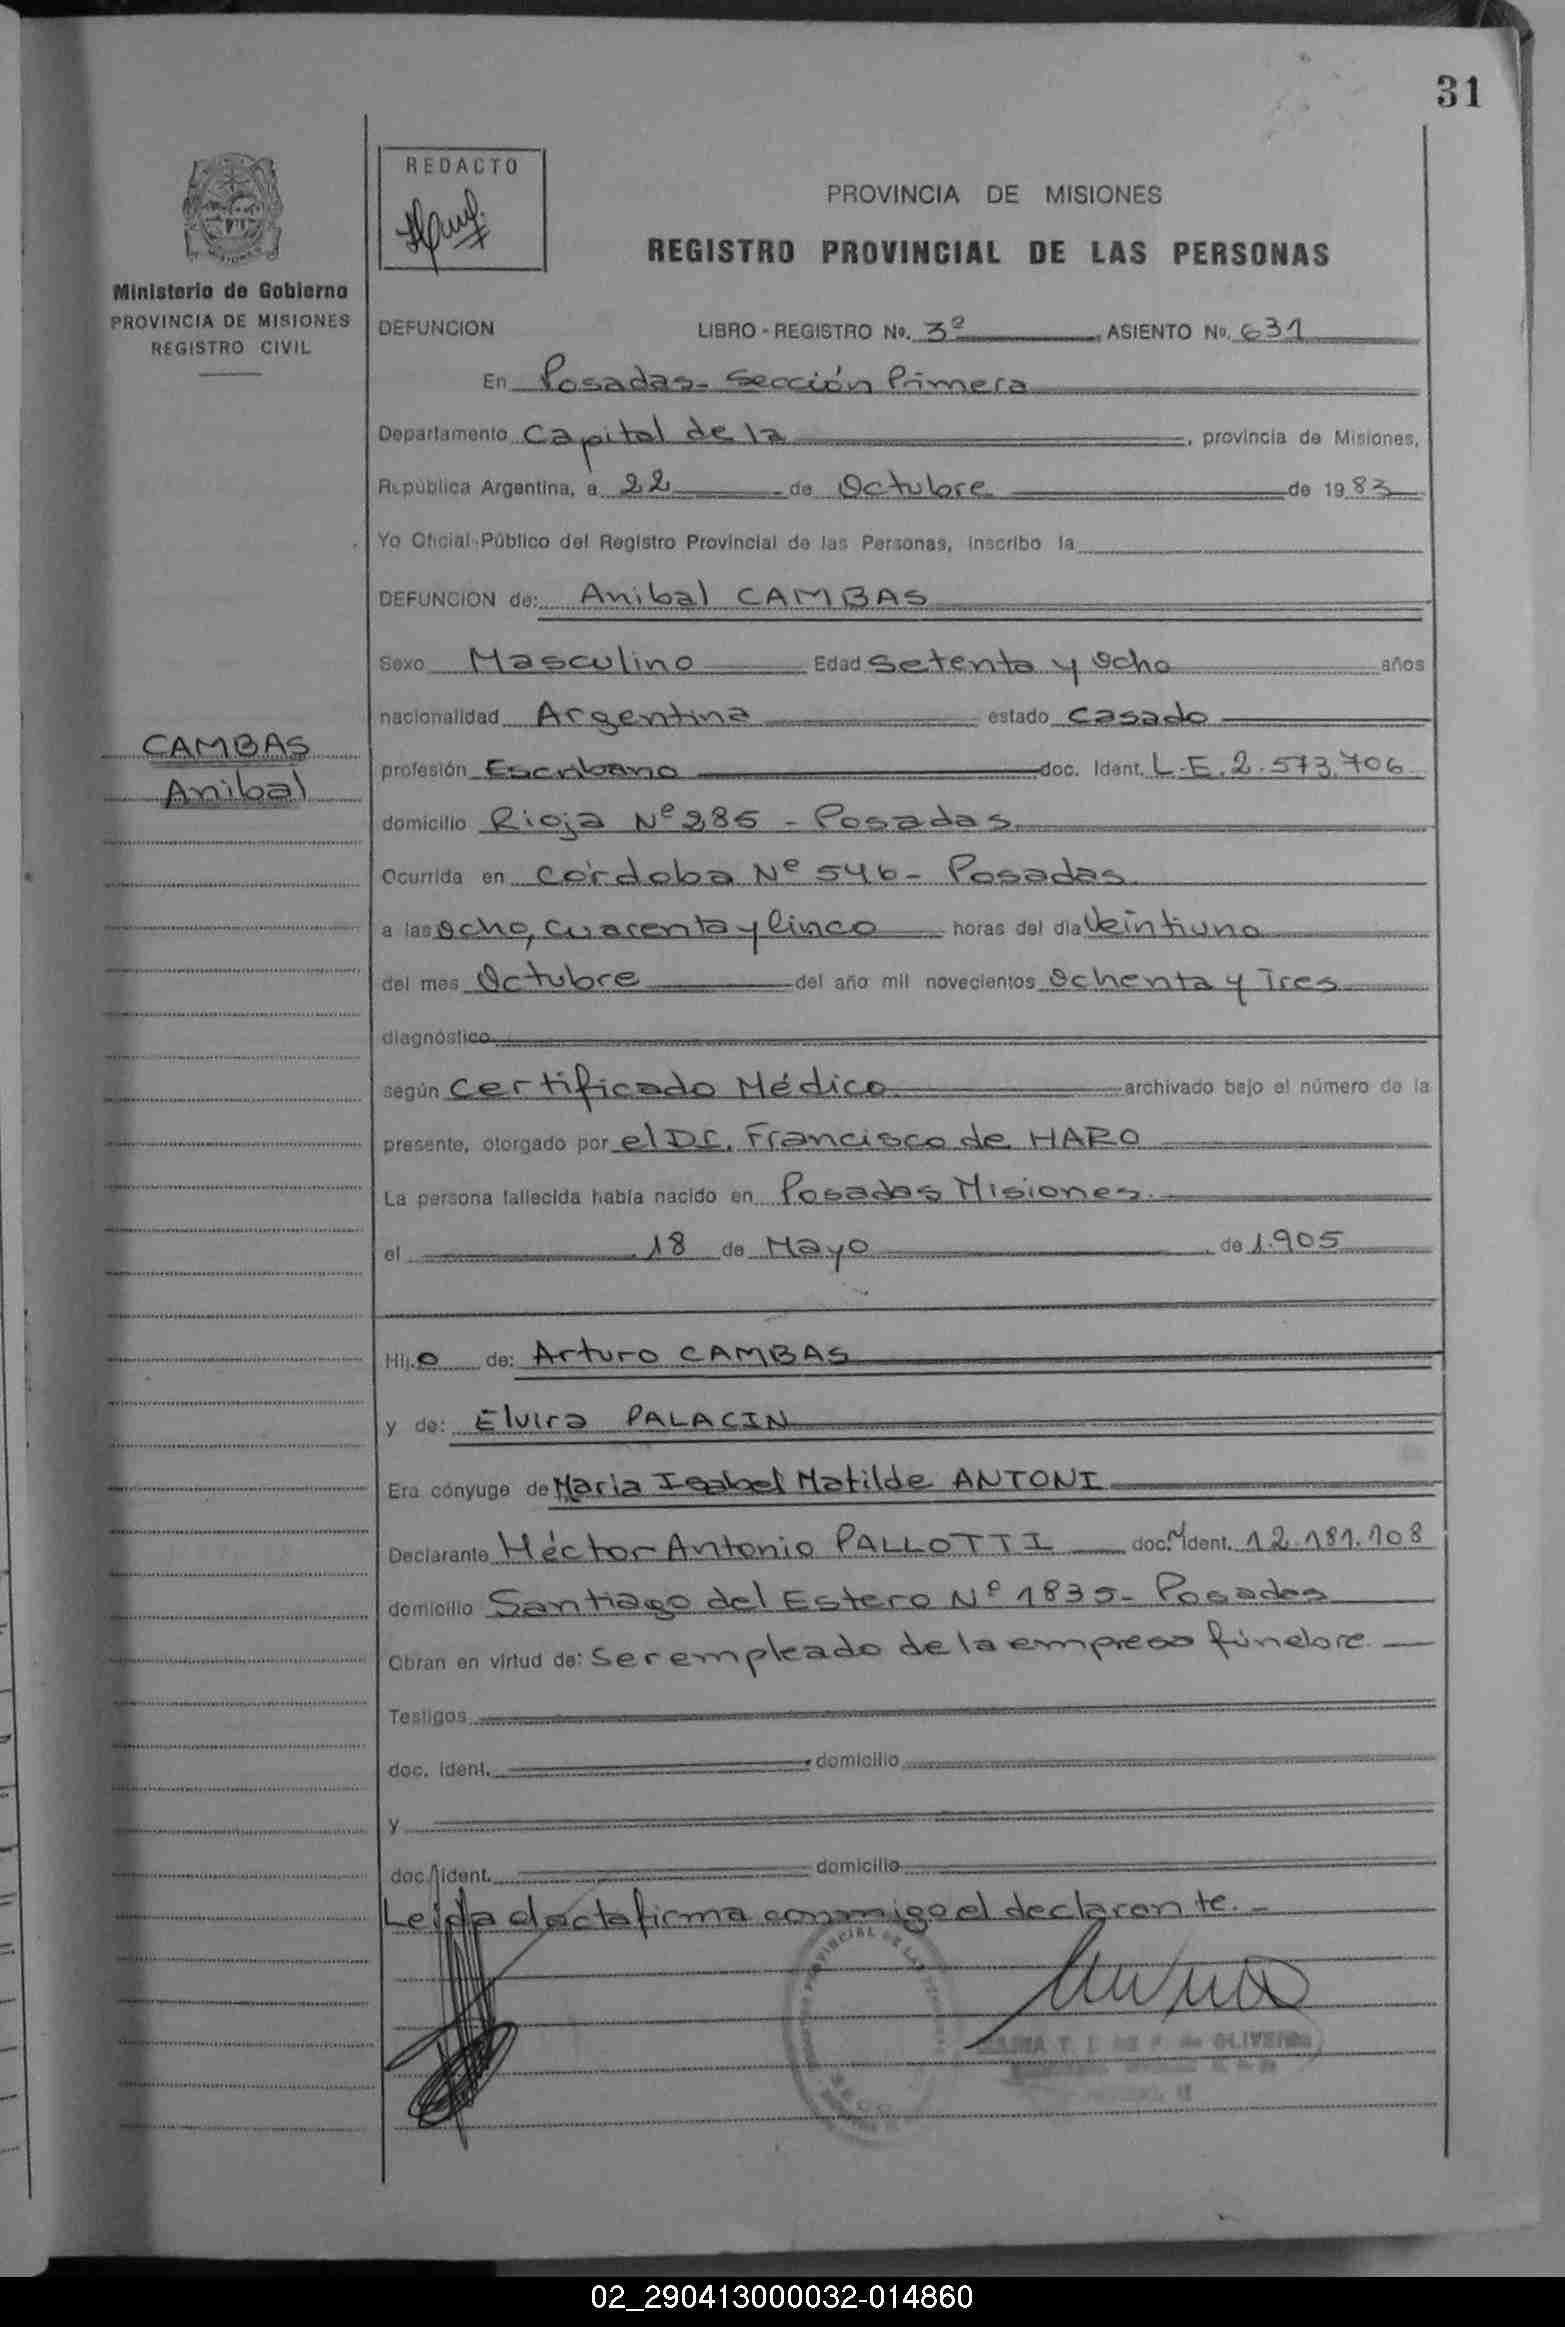 31
REDACTO
PROVINCIA DE MISIONES
REGISTRO PROVINCIAL DE LAS PERSONAS
Ministerio de Gobierno
PROVINCIA DE MISIONES
REGISTRO CIVIL
DEFUNCION LIBRO - REGISTRO Nº. 3º ASIENTO Nº. 631
En Posadas- Sección Primera
Departamento Capital de la, provincia de Misiones,
República Argentina, a 22 de Octubre de 1983
Yo Oficial Público del Registro Provincial de las Personas, inscribo la
DEFUNCION de: Anibal CAMBAS
Sexo Masculino Edad Setenta y Ocho años
nacionalidad Argentina estado Casado
CAMBAS
Anibal
profesión Escribano doc. Ident. L.E. 2.573.706
domicilio Rioja Nº 285 - Posadas
Ocurrida en Córdoba Nº 546- Posadas
a las Ocho, Cuarenta y Cinco horas del día Veintiuno
del mes Octubre del año mil novecientos Ochenta y Tres
diagnóstico
según Certificado Médico archivado bajo el número de la
presente, otorgado por el Dr. Francisco de HARO
La persona fallecida había nacido en Posadas Misiones.
el 18 de Mayo de 1.905
Hijo de: Arturo CAMBAS
y de: Elvira PALACIN
Era cónyuge de Maria Isabel Matilde ANTONI
Declarante Héctor Antonio PALLOTTI doc. Ident. 12.181.108
domicilio Santiago del Estero Nº 1835- Posadas
Obran en virtud de: Ser empleado de la empresa fúnebre.
Testigos
doc. ident. domicilio
y
doc. ident. domicilio
Leida el acta firma conmigo el declarante.-
02_290413000032-014860